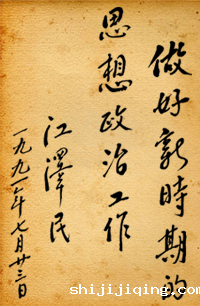 做好新時期的
思想政治工作
江澤民
一九九一年七月廿三日
shijijiqing.com